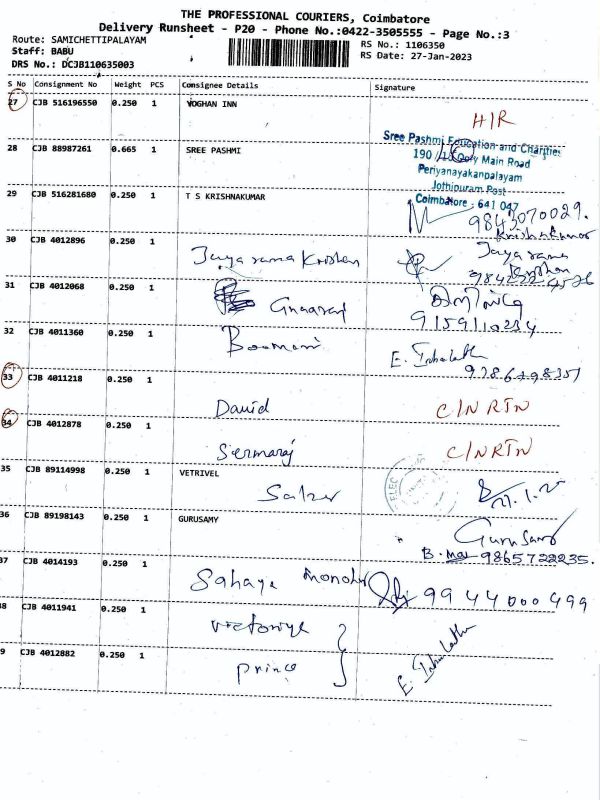 THE PROFESSIONAL COURIERS, Coimbatore
Delivery Runsheet - P20 - Phone No.:0422-3505555 - Page No.:3
Route: SAMICHETTIPALAYAM
Staff: BABU
DRS No.: DCJB110635003
RS No.: 1106350
RS Date: 27-Jan-2023
S No Consignment No Weight PCS Consignee Details Signature
27 CJB 516196550 0.250 1 VOGHAN INN
H/R
28 CJB 88987261 0.665 1 SREE PASHMI
Sree Pashmi Education and Charities
Main Road
Periyanayakanpalayam
Jothipuram Post
Coimbatore - 641 047
29 CJB 516281680 0.250 1 T S KRISHNAKUMAR
9843070029.
Krishnakumar
30 CJB 4012896 0.250 1 Jayarama Krishnan
Jayarama
Krishnan
31 CJB 4012068 0.250 1 Gnanaraj
9159110234
32 CJB 4011360 0.250 1
E.
33 CJB 4011218 0.250 1
David C/N RTN
34 CJB 4012878 0.250 1
Sermaraj C/N RTN
35 CJB 89114998 0.250 1 VETRIVEL
ELEC
36 CJB 89198143 0.250 1 GURUSAMY
Gurusamy
9865722235.
37 CJB 4014193 0.250 1 Sahaya Manohar 9944000499
38 CJB 4011941 0.250 1
39 CJB 4012882 0.250 1 prince
E.